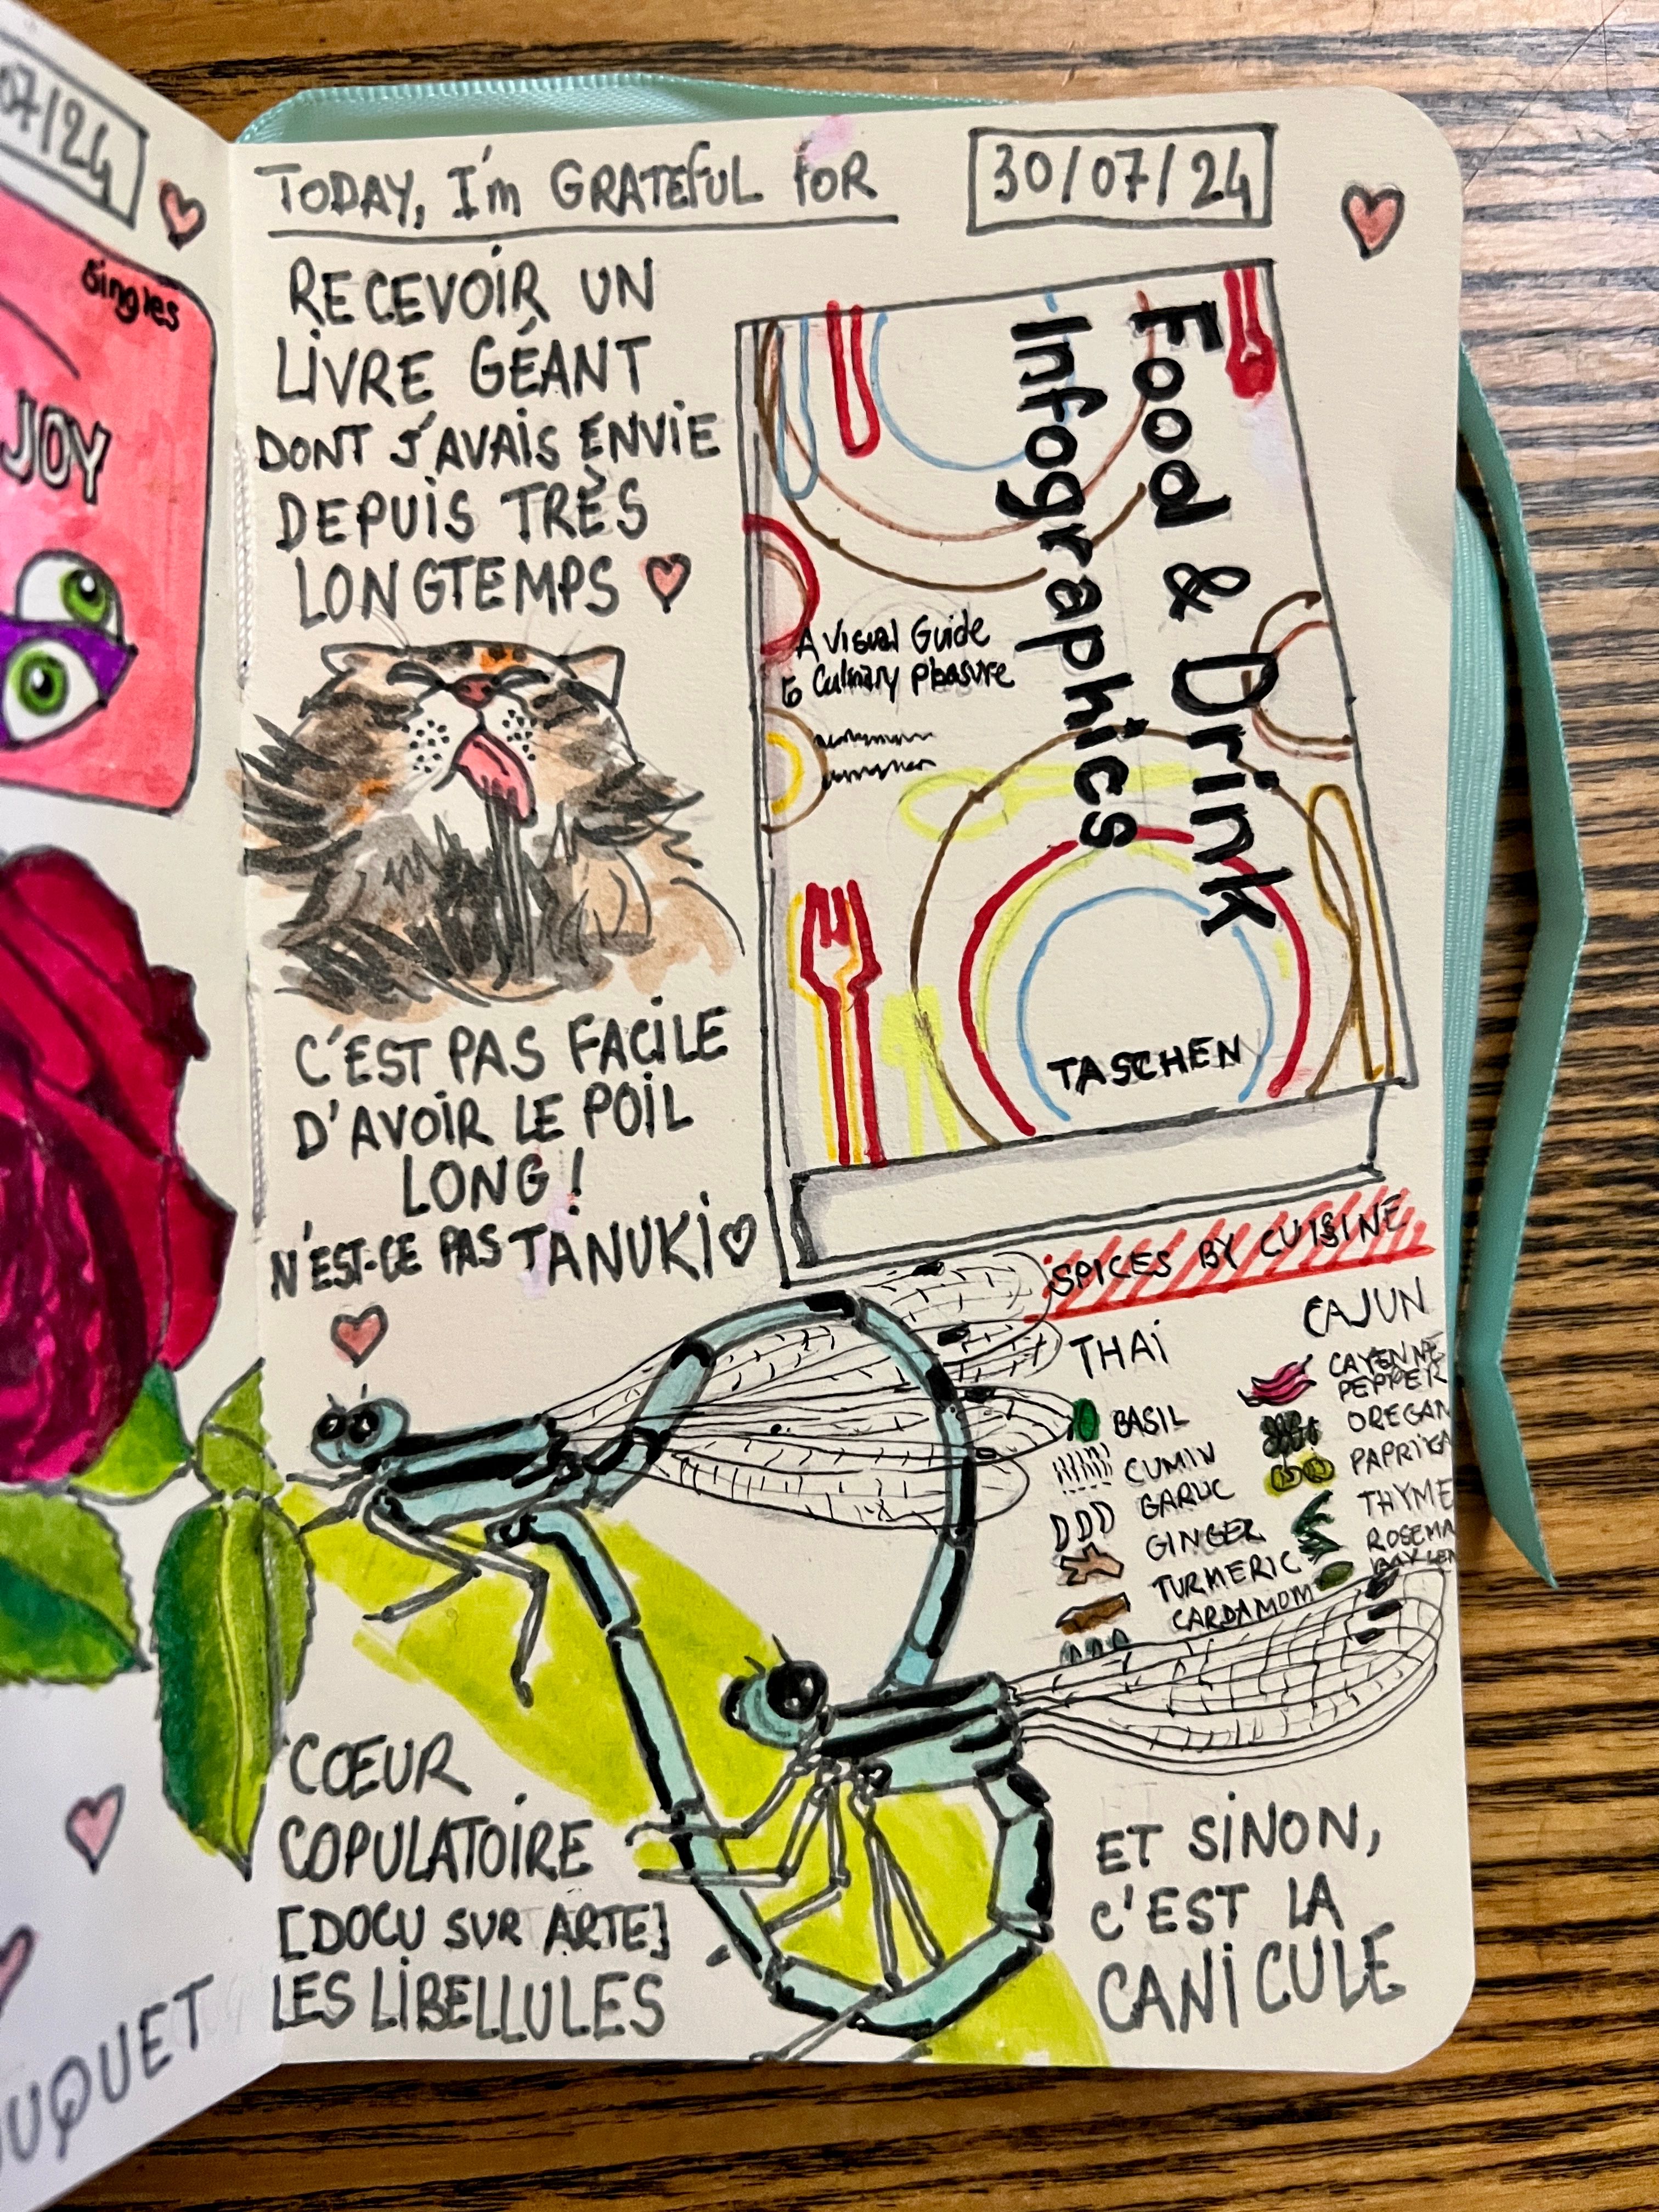 07/24
Singles
JOY
UQUET
TODAY, I'm GRATEFUL FOR
30/07/24
RECEVOIR UN
LIVRE GÉANT
DONT J'AVAIS ENVIE
DEPUIS TRÈS
LONGTEMPS
Food & Drink
Infographics
A Visual Guide
to Culinary Pleasure
TASCHEN
C'EST PAS FACILE
D'AVOIR LE POIL
LONG !
N'EST-CE PAS TANUKI
SPICES BY CUISINE
THAI
BASIL
CUMIN
GARLIC
GINGER
TURMERIC
CARDAMOM
CAJUN
CAYENNE
PEPPER
OREGAN
PAPRIKA
THYME
ROSEMA
BAY LEA
CŒUR
COPULATOIRE
[DOCU SUR ARTE]
LES LIBELLULES
ET SINON,
C'EST LA
CANICULE